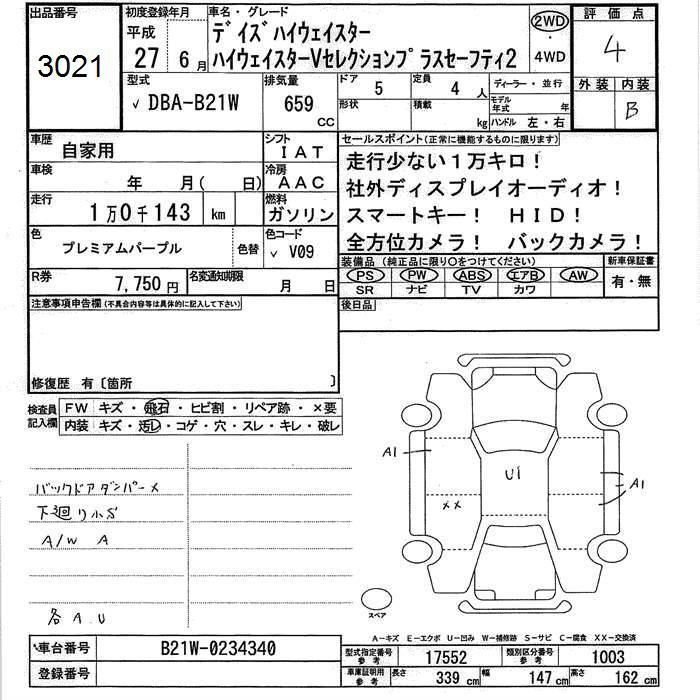 出品番号
3021
初度登録年月
平成
27 6月
車名・グレード
デイズハイウェイスター
ハイウェイスターVセレクションプラスセーフティ2
2WD
・
4WD
評価点
4
外装 内装
B
型式
✓ DBA-B21W
排気量
659
CC
ドア
5
定員
4 人
形状
積載
kg
ディーラー・並行
モデル年式 年
ハンドル 左・右
車歴
自家用
シフト
IAT
車検
年 月( 日)
冷房
AAC
走行
1万0千143 km
燃料
ガソリン
色
プレミアムパープル
色替
色コード
✓ V09
R券
7,750円
名変通知期限
月 日
セールスポイント(正常に機能するものに限ります)
走行少ない1万キロ!
社外ディスプレイオーディオ!
スマートキー! HID!
全方位カメラ! バックカメラ!
装備品(純正品に限り○をつけてください)
PS PW ABS エアB AW
SR ナビ TV カワ
新車保証書
有・無
後日品
注意事項申告欄(不具合内容等は具体的に記入して下さい)
修復歴 有〔箇所 〕
検査員
記入欄
FW キズ・飛石・ヒビ割・リペア跡・×要
内装 キズ・汚レ・コゲ・穴・スレ・キレ・破レ
バックドアダンパーメ
下廻り小S
A/W A
各A.U
A1
U1
A1
××
スペア
A-キズ E-エクボ U-凹み W-補修跡 S-サビ C-腐食 XX-交換済
車台番号
B21W-0234340
登録番号
型式指定番号
参考
17552
類別区分番号
参考
1003
車庫証明用
参考
長さ
339 cm
幅
147 cm
高さ
162 cm